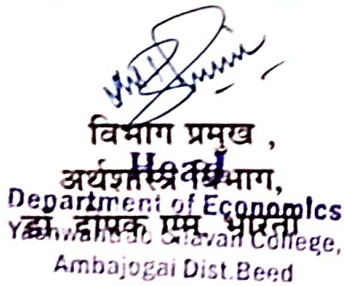 विभाग प्रमुख ,
Head
अर्थशास्त्र विभाग,
Department of Economics
डॉ. दीपक एम. भारती
Yashwantrao Chavan College,
Ambajogai Dist.Beed